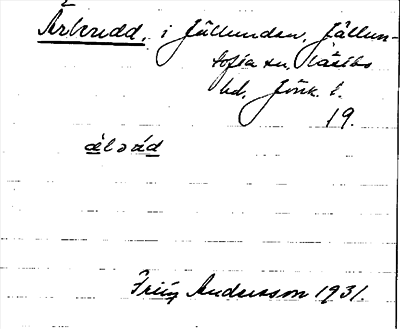 Årbrudd, i Jällunden, Jällun-
tofta sn, Västbo
hd, Jönk. l.
19.
ålåd
Frity Andersson 1931.